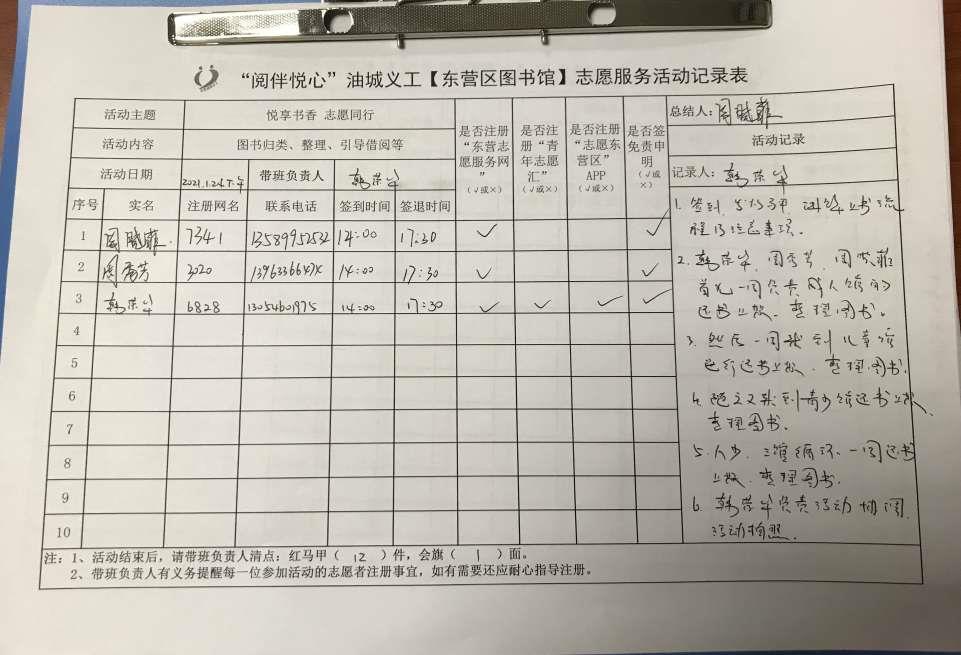 “阅伴悦心”油城义工【东营区图书馆】志愿服务活动记录表
活动主题 悦享书香 志愿同行
活动内容 图书归类、整理、引导借阅等
活动日期 2021.1.24.下午 带班负责人 韩荣华
是否注册“东营志愿服务网”（√或×）
是否注册“青年志愿汇”（√或×）
是否注册“志愿东营区”APP（√或×）
是否签免责申明（√或×）
总结人：周晓菲
活动记录
记录人：韩荣华
序号 实名 注册网名 联系电话 签到时间 签退时间
1 周晓菲 7341 13589952532 14:00 17:30 √ √
2 周秀芳 3020 13963366474 14:00 17:30 √ √
3 韩荣华 6828 13054601975 14:00 17:30 √ √ √ √
4
5
6
7
8
9
10
1. 签到,发马甲,讲解上书流
程及注意事项。
2. 韩荣华,周秀芳,周晓菲
首先一同负责成人馆的
还书上架、整理图书。
3. 然后一同来到儿童馆
进行还书上架、整理图书.
4. 随之又来到青少馆还书上架、
整理图书.
5. 人少,三馆循环、一同还书
上架,整理图书.
6. 韩荣华负责活动协调
活动拍照.
注：1、活动结束后，请带班负责人清点：红马甲（ 12 ）件，会旗（ 1 ）面。
2、带班负责人有义务提醒每一位参加活动的志愿者注册事宜，如有需要还应耐心指导注册。